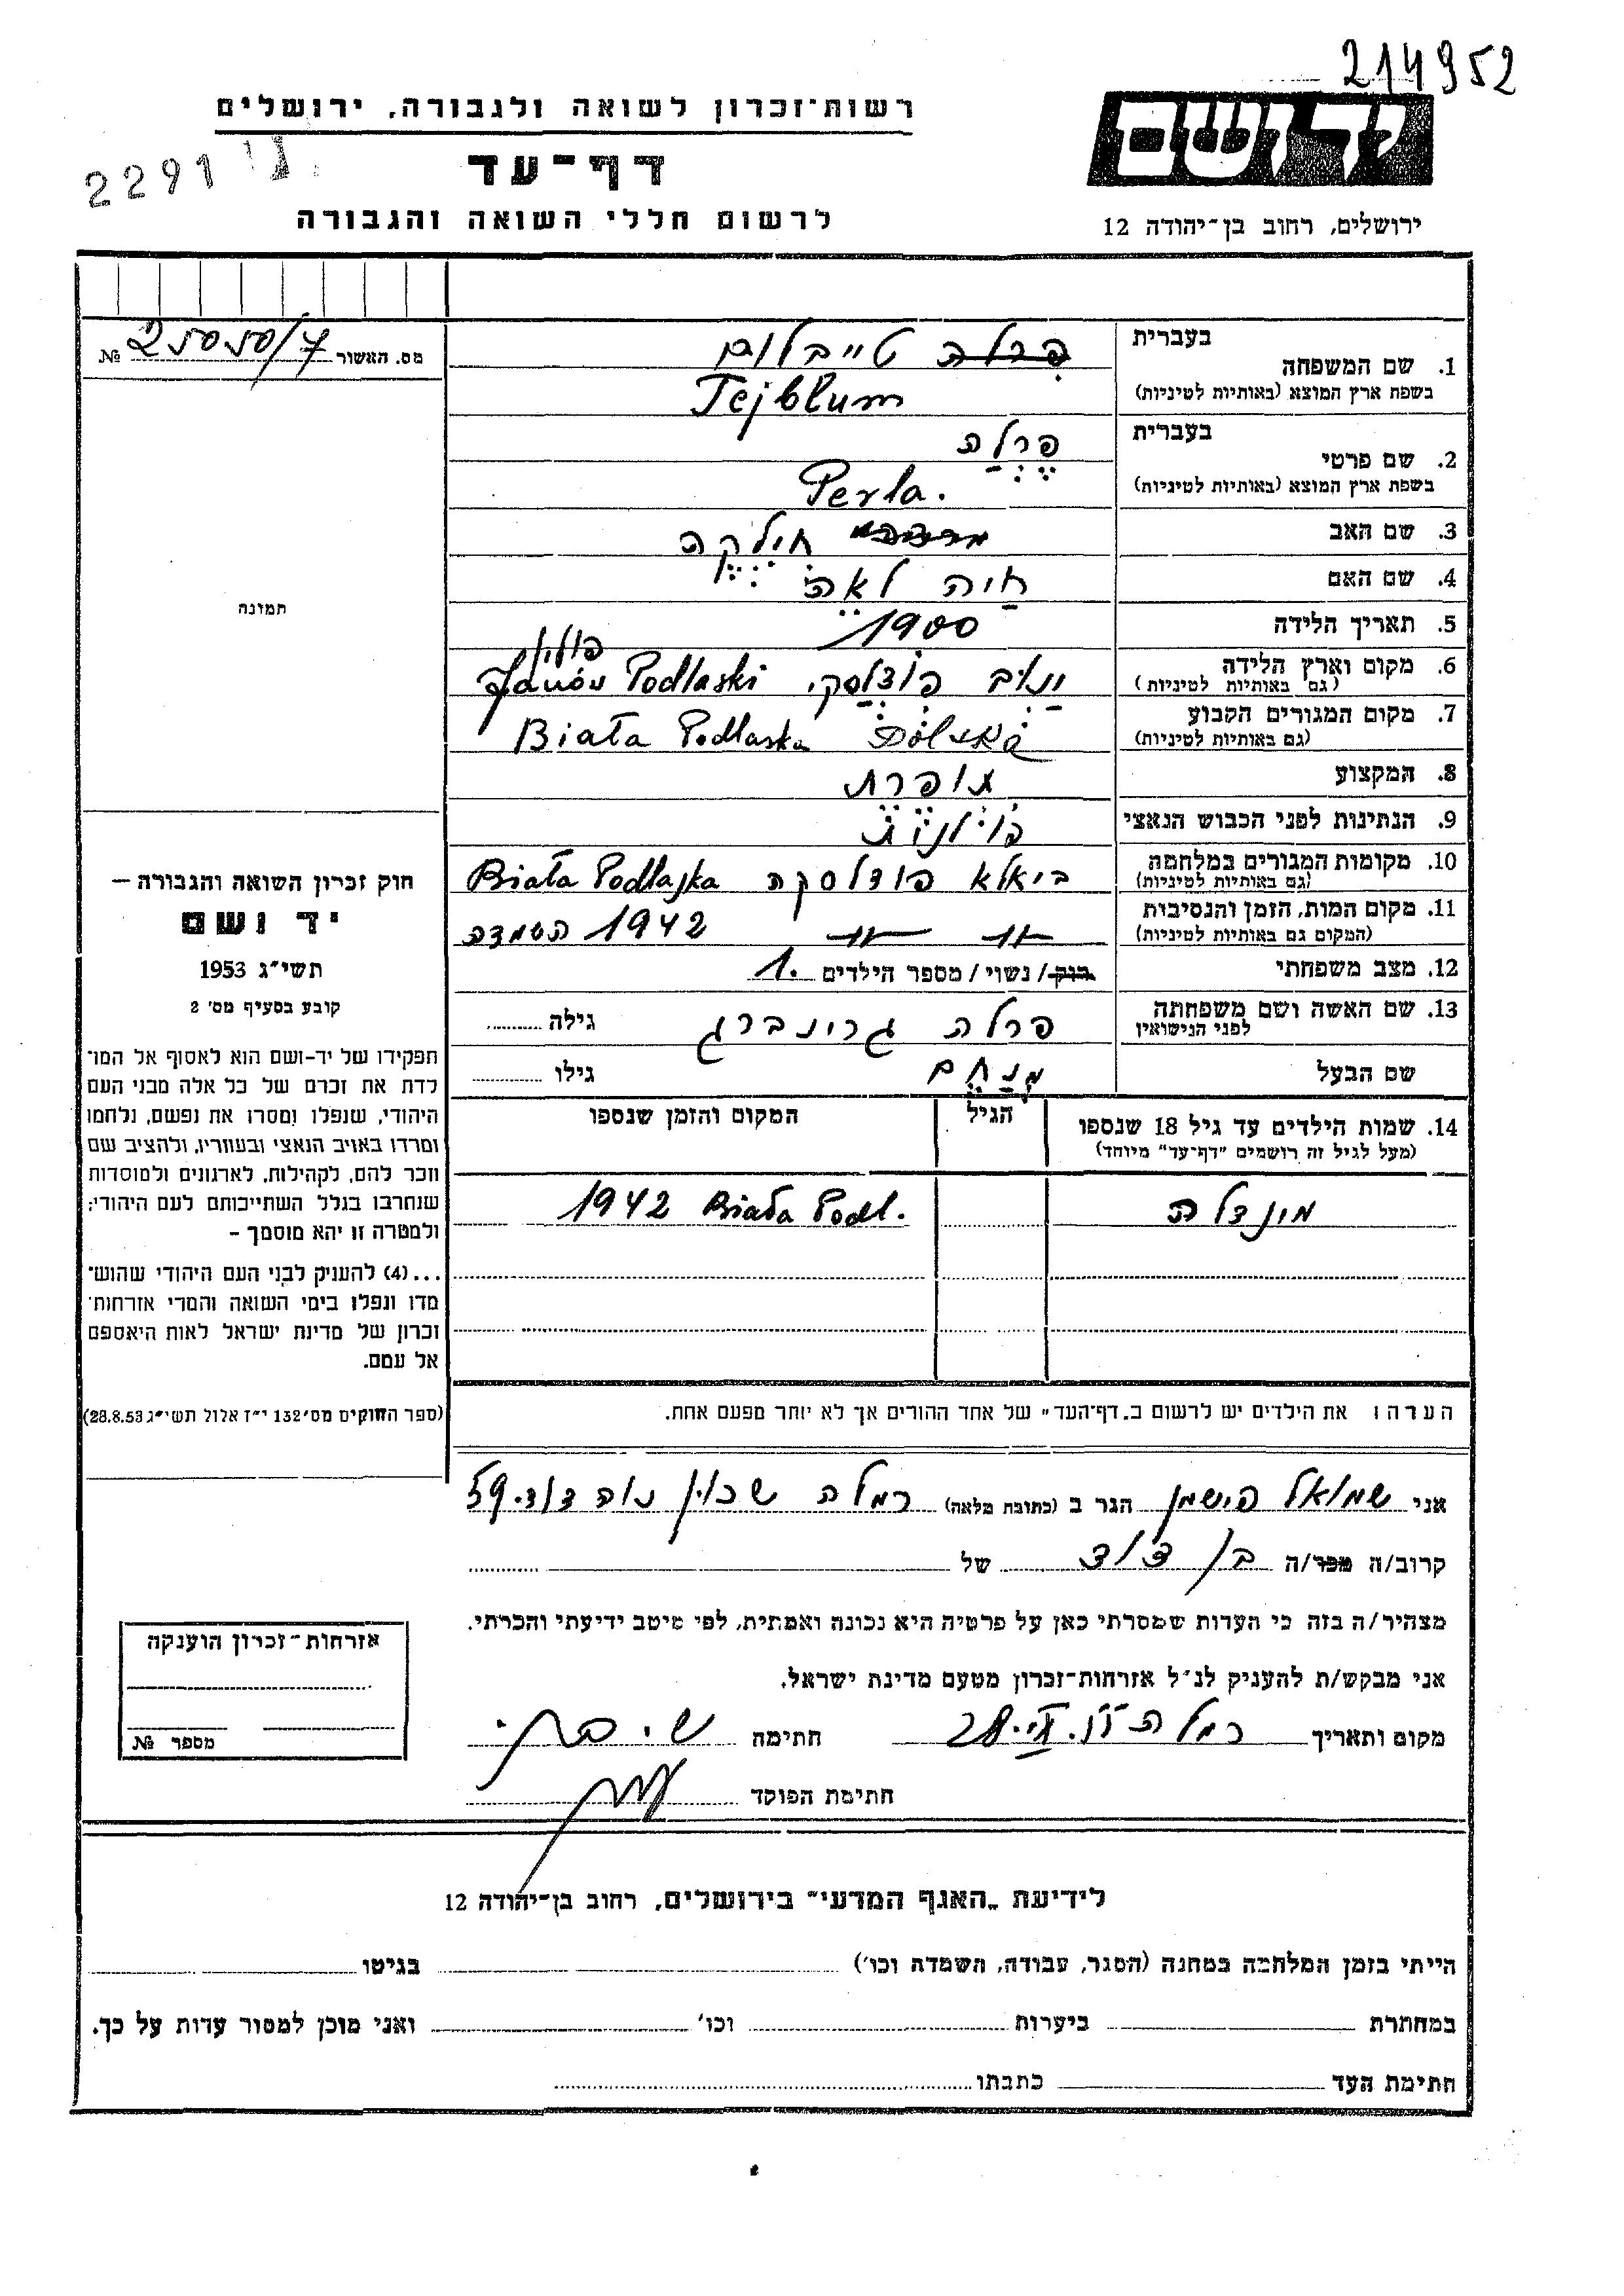 214952
יד ושם
ירושלים, רחוב בן־יהודה 12
רשות־זכרון לשואה ולגבורה, ירושלים
דף־עד
לרשום חללי השואה והגבורה
2291
מס. האשור № 25050/7
בעברית
1. שם המשפחה
בשפת ארץ המוצא (באותיות לטיניות)
פרלה טייבלום
Tejblum
בעברית
2. שם פרטי
בשפת ארץ המוצא (באותיות לטיניות)
פרלה
Perla.
3. שם האב
חילקה
4. שם האם
חיה לאה
5. תאריך הלידה
1900
6. מקום וארץ הלידה
(גם באותיות לטיניות)
ינוב פודלסקי, Janów Podlaski פולין
7. מקום המגורים הקבוע
(גם באותיות לטיניות)
Biała Podlaska
8. המקצוע
תופרת
9. הנתינות לפני הכבוש הנאצי
פולנית
10. מקומות המגורים במלחמה
(גם באותיות לטיניות)
ביאלא פודלסקה Biała Podlaska
11. מקום המות, הזמן והנסיבות
(המקום גם באותיות לטיניות)
1942 השמדה
12. מצב משפחתי
רוק/ נשוי/ מספר הילדים 1.
13. שם האשה ושם משפחתה
לפני הנישואין
פרלה גרינברג גילה
שם הבעל
מנחם גילו
14. שמות הילדים עד גיל 18 שנספו
(מעל לגיל זה רושמים "דף־עד" מיוחד)
הגיל
המקום והזמן שנספו
מונדלה
1942 Biała Podl.
הערה: את הילדים יש לרשום ב„דף־העד" של אחד ההורים אך לא יותר מפעם אחת.
תמונה
חוק זכרון השואה והגבורה —
יד ושם
תשי"ג 1953
קובע בסעיף מס' 2
תפקידו של יד-ושם הוא לאסוף אל המו־
לדת את זכרם של כל אלה מבני העם
היהודי, שנפלו ומסרו את נפשם, נלחמו
ומרדו באויב הנאצי ובעוזריו, ולהציב שם
וזכר להם, לקהילות, לארגונים ולמוסדות
שנחרבו בגלל השתייכותם לעם היהודי;
ולמטרה זו יהא מוסמך —
...(4) להעניק לבני העם היהודי שהוש־
מדו ונפלו בימי השואה והמרי אזרחות־
זכרון של מדינת ישראל לאות היאספם
אל עמם.
(ספר החוקים מס' 132 י"ז אלול תשי"ג 28.8.53)
אני שמואל פישמן הגר ב (כתובת מלאה) רמלה שכון נוה דוד 59
קרוב/ה מכר/ה בן דוד של
מצהיר/ה בזה כי העדות שמסרתי כאן על פרטיה היא נכונה ואמתית, לפי מיטב ידיעתי והכרתי.
אני מבקש/ת להעניק לנ"ל אזרחות־זכרון מטעם מדינת ישראל.
מקום ותאריך רמלה
חתימה
חתימת הפוקד
אזרחות־זכרון הוענקה
מספר №
לידיעת „האגף המדעי" בירושלים, רחוב בן־יהודה 12
הייתי בזמן המלחמה במחנה (הסגר, עבודה, השמדה וכו') בגיטו
במחתרת ביערות וכו' ואני מוכן למסור עדות על כך.
חתימת העד כתבתו